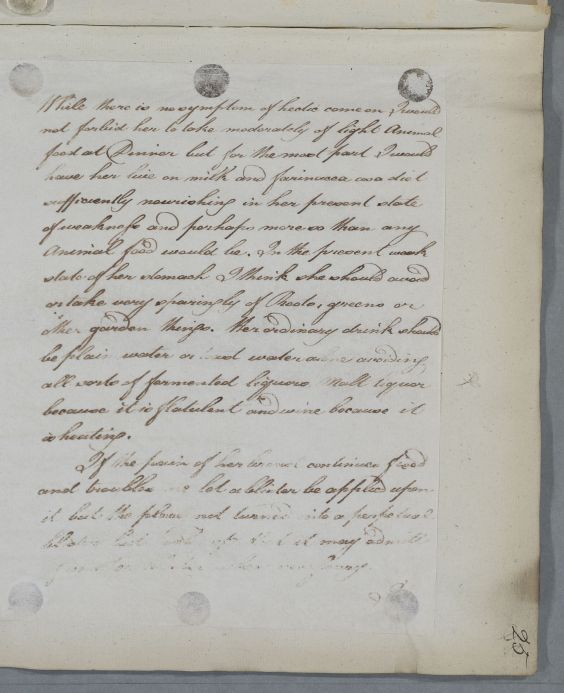 While there is no symptom of hectic come on I would
not forbid her to take moderately of light Animal
food at Dinner but for the most part I would
have her live on milk and farinacea as a diet
sufficiently nourishing in her present state
of weakness and perhaps more so than any
Animal food would be. In the present weak
state of her stomach I think she should avoid
or take very sparingly of Roots, greens or
other garden things. Her ordinary drink should
be plain water or toast water alone avoiding
all sorts of fermented liquors Malt liquor
because it is flatulent and wine because it
is heating.
If the pain of her breast continues fixed
and troublesome let a blister be applied upon
it but the place not turned into a perpetual
it may admit
25